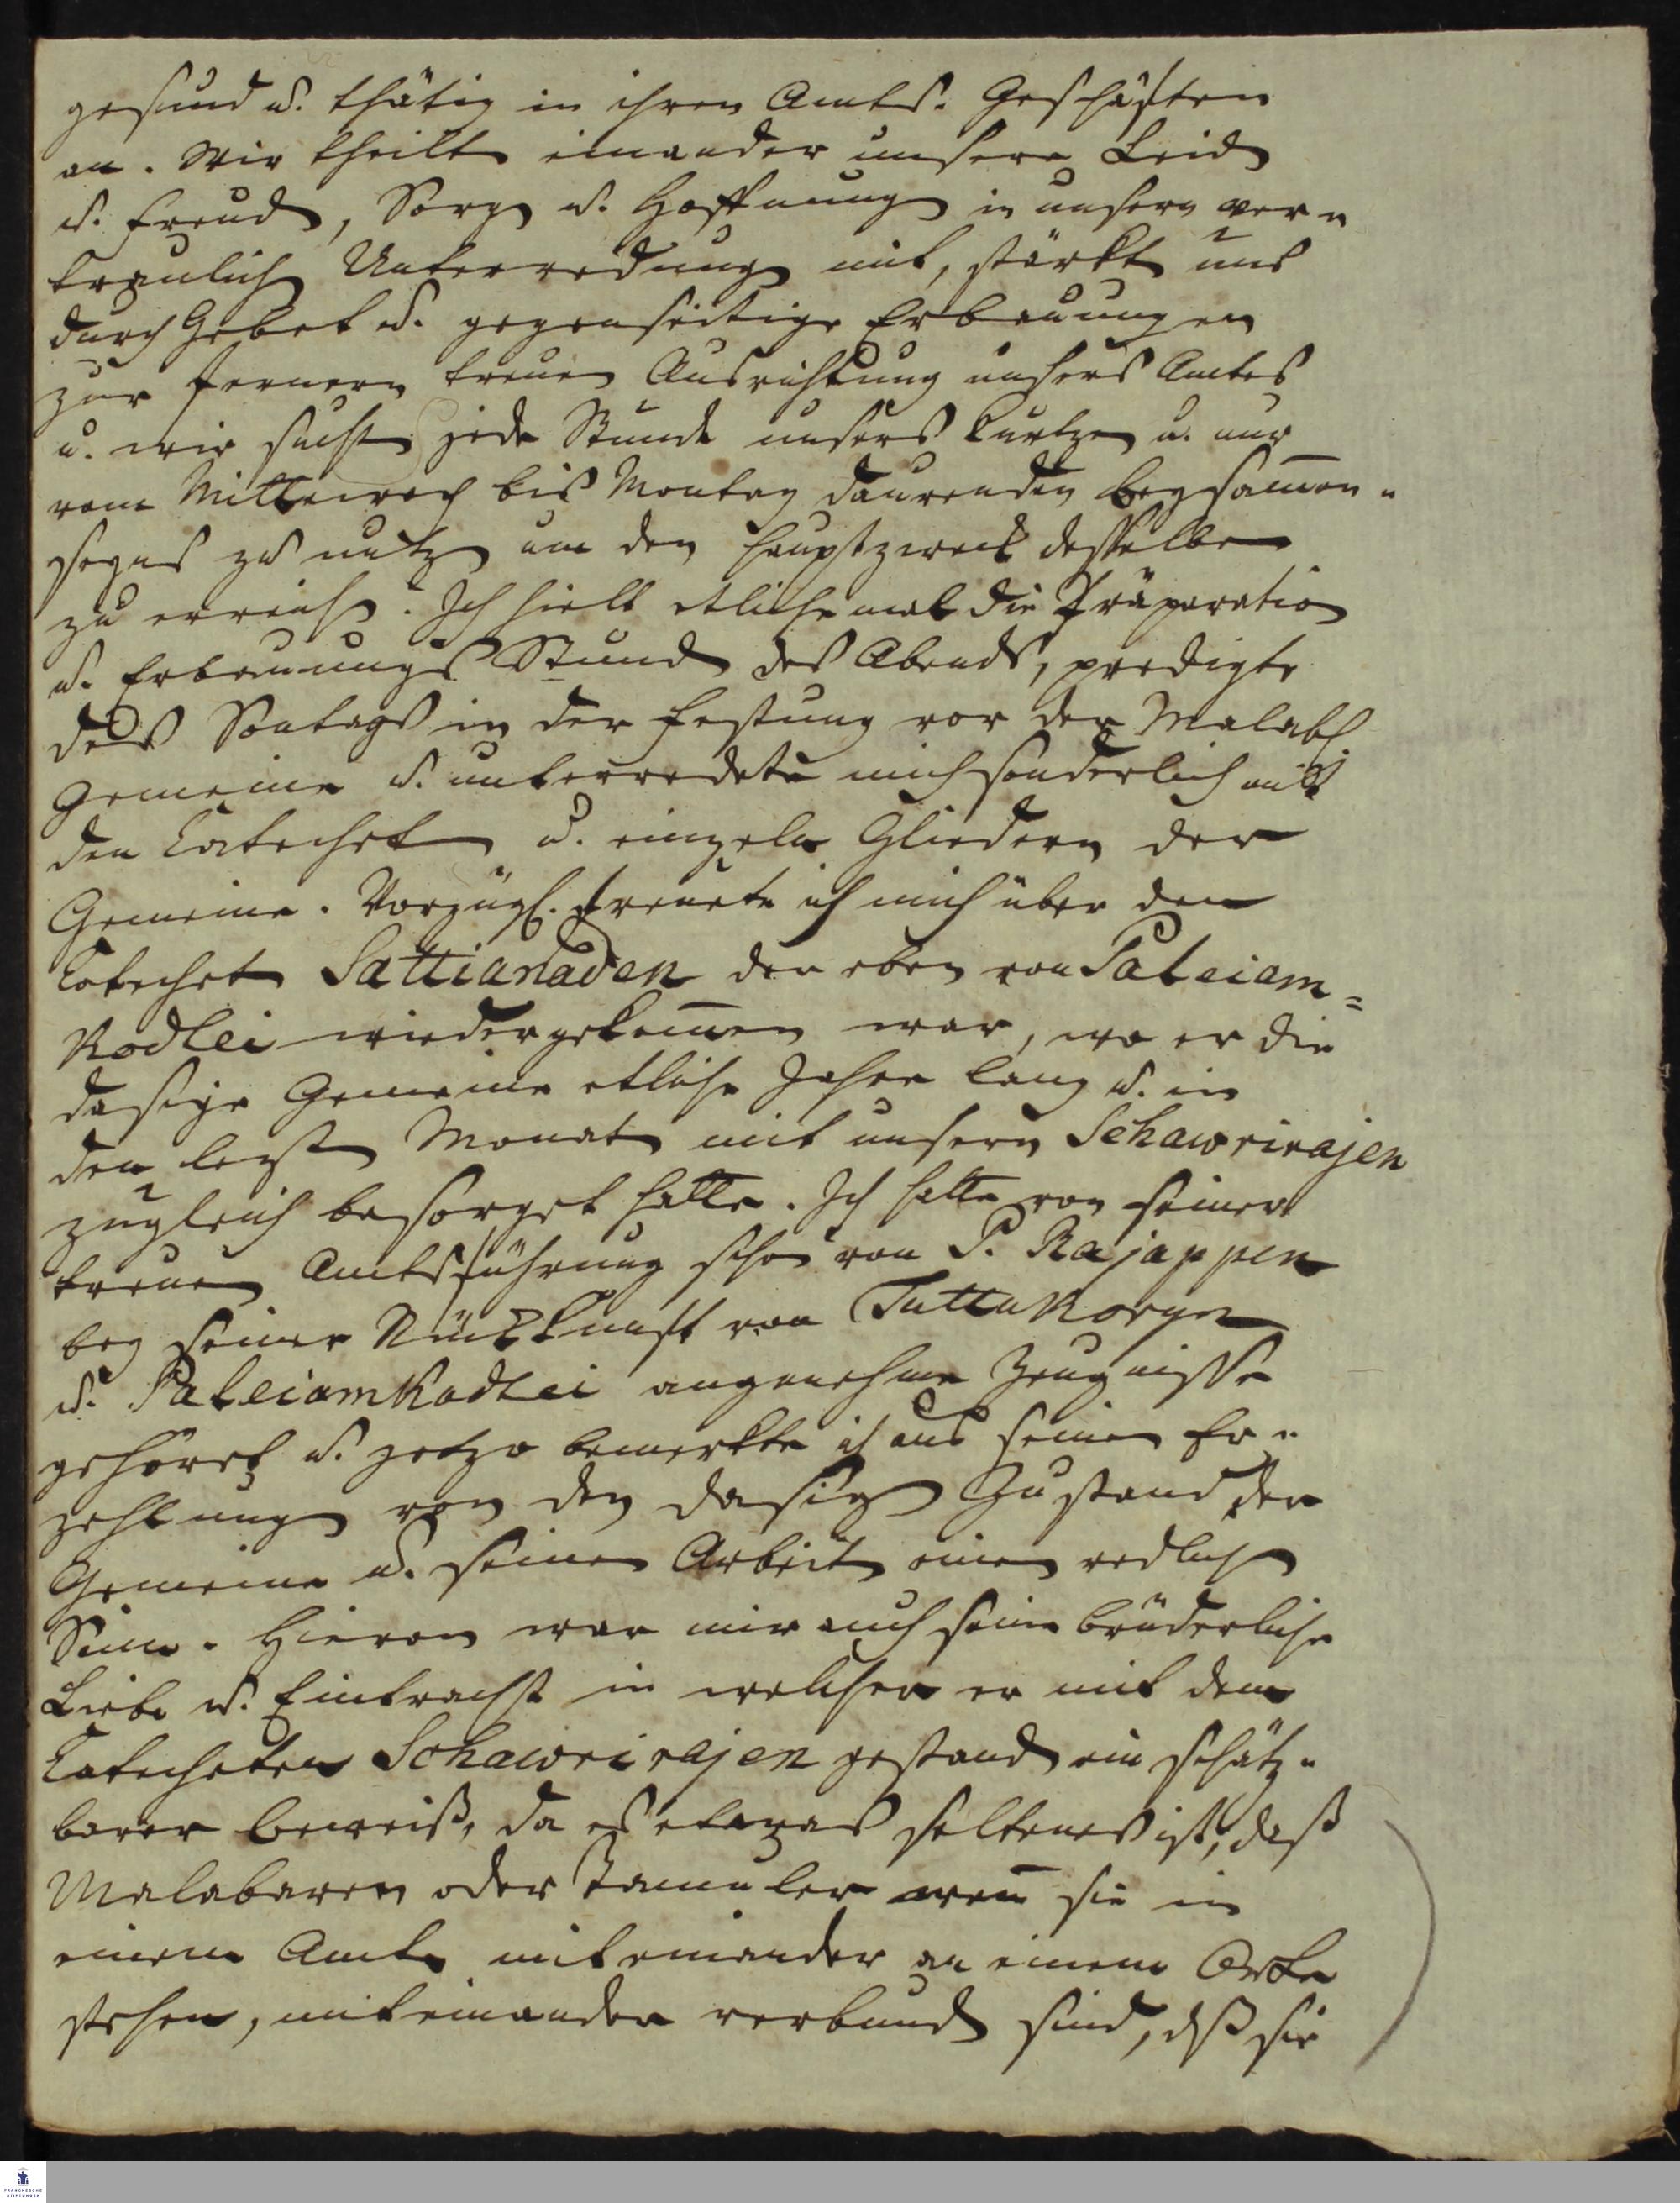 gesund u. thätig in ihren Amts-Geschäften
an. Wir theilten einander unsere Leiden
u. Freuden, Sorgen u. Hoffnungen in unsern ver-
traulichen Unterredungen mit, stärkten uns
durch Gebet u. gegenseitige Erbauungen
zur fernern treuen Ausrichtung unsers Amtes
u. wir suchten jede Stunde unsers kurtzen u. nur
vom Mittewoch bis Montag daurenden Beysam̅en-
seyns zu nutzen um den Hauptzweck desselben
zu erreichen. Ich hielt etlichemal die Präparation
u. Erbauungs Stunden des Abends, predigte
des Sontags in der Festung vor der Malab.
Gemeine u. unterredete mich sonderlich mit
den Catecheten u. einzeln Gliedern der
Gemeine. Vorzügl. freuete ich mich über den
Catecheten Sattianaden der eben von Paleiam=
Kodtei wiedergekom̅en war, wo er die
dasige Gemeine etliche Jahre lang u. in
den letzten Monaten mit unserm Schawrirajen
zugleich besorget hatte. Ich hatte von seiner
treuen Amtsführung schon von P. Rajappen
bey seiner Rückkunft von Tuttukoryn
u. Paleiamkodtei angenehme Zeugnisse
gehöret u. jetzo bemerkte ich aus seinen Er-
zehlungen von den dasigen Zustand der
Gemeine u. seinen Arbeiten einen redlichen
Sinn. Hievon war mir auch seine brüderliche
Liebe u. Eintracht in welcher er mit dem
Catecheten Schawrirajen gestanden ein schätz-
barer Beweiß, da es etwas seltenes ist, daß
Malabaren oder Tamuler wen̅ sie in
einem Amte miteinander an einem Orte
stehen, miteinander verbunden sind, dß sie
FRANCKESCHE
STIFTUNGEN